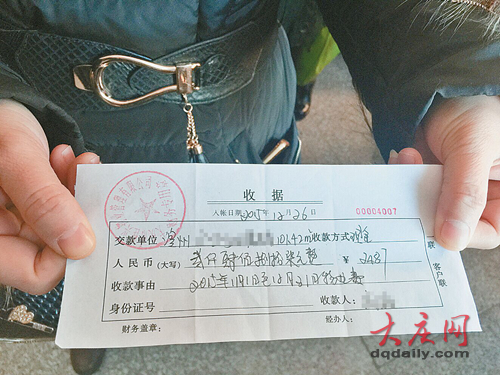 收据
入帐日期 2015年12月26日
00004007
交款单位: 101.42m² 收款方式 现金
人民币(大写) 贰仟肆佰捌拾柒元整 ¥ 2487
收款事由 2015年1月1日至12月21日物业费
身份证号 收款人:
财务盖章: 经办人:
一联
客户联
管理有限公司
大庆网
dqdaily.com